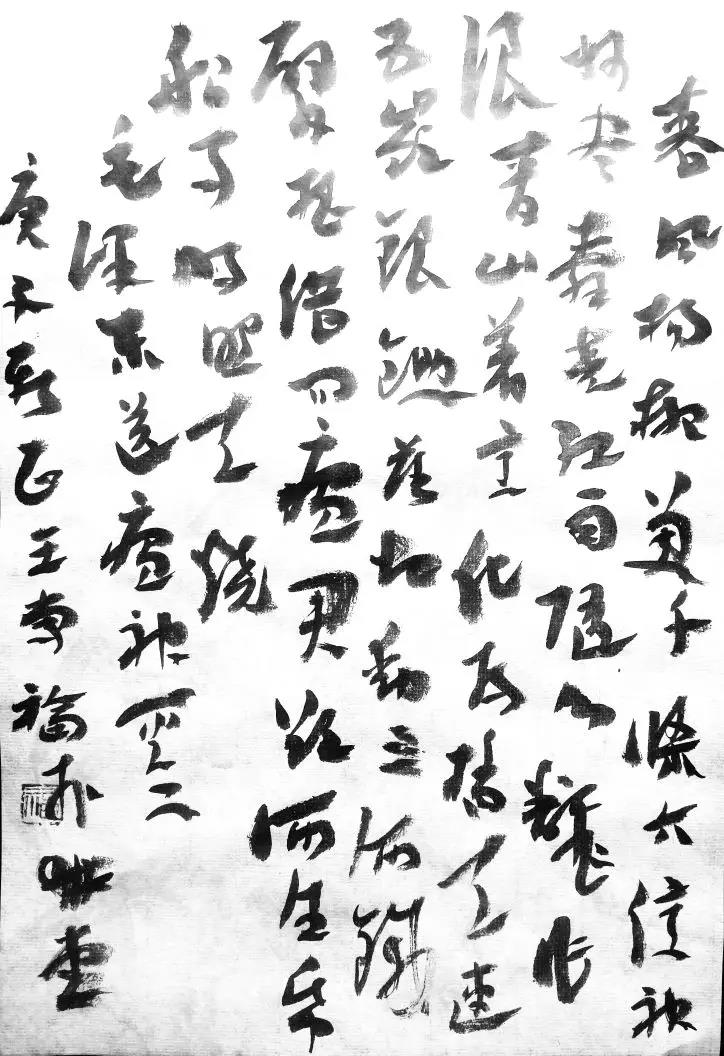 春风杨柳萬千條六億神
州尽舜尧红雨随心翻作
浪青山着意化为桥天連
五岭银锄落地动三河铁
臂摇借问瘟君欲何往纸
船明照天烧
毛泽东送瘟神其二
庚子新正王福於堂